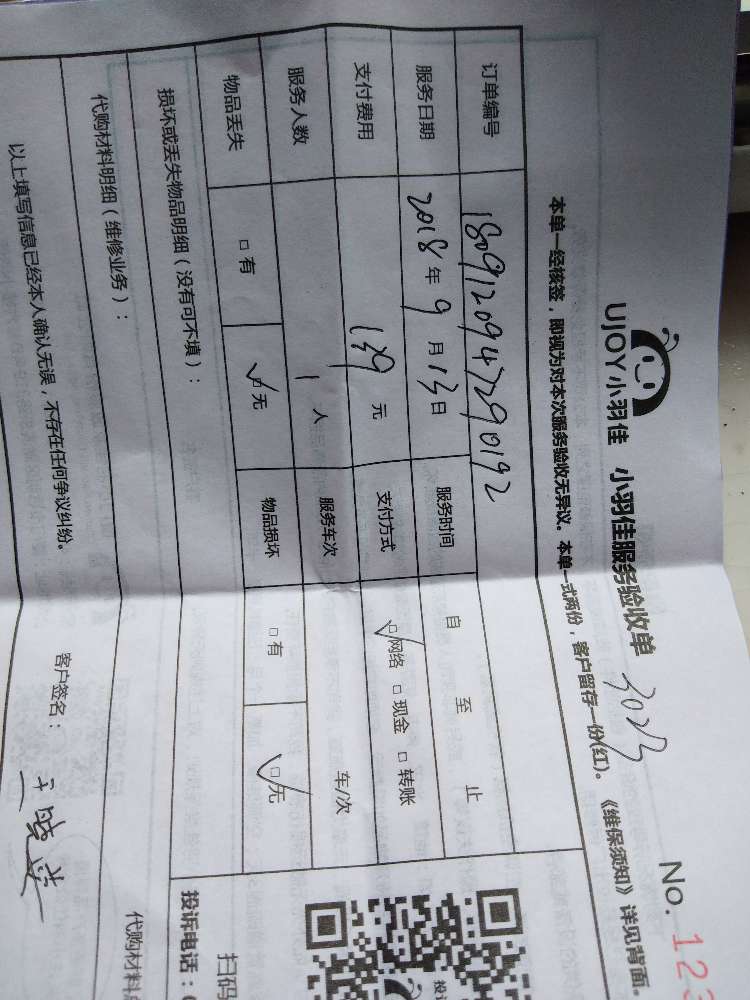 UJOY小羽佳 小羽佳服务验收单 No. 123
本单一经核签，即视为对本次服务验收无异议。本单一式两份，客户留存一份(红)。《维保须知》详见背面。
订单编号 1809120947290192
服务日期 2018年9月13日 服务时间 自 至 止
支付费用 139元 支付方式 ☑网络 □现金 □转账
服务人数 1人 服务车次 车/次
物品丢失 □有 ☑无 物品损坏 □有 ☑无
损坏或丢失物品明细（没有可不填）：
代购材料明细（维修业务）：
代购材料
以上填写信息已经本人确认无误，不存在任何争议纠纷。
客户签名：
扫码
投诉电话：